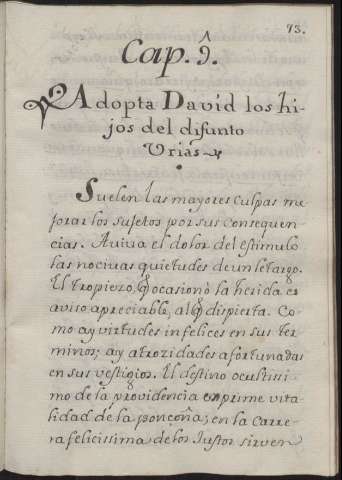 93.
Cap. 9.
Adopta David los hi-
jos del difunto
Urias
Suelen las mayores culpas me
jorar los sujetos por sus consequen
cias. Aviva el dolor del estimulo
las nocivas quietudes de un letargo.
El tropiezo, q̃ ocasionò la herida es
aviso apreciable, al q̃ dispierta. Co
mo ay virtudes infelices en sus ter
minos; ay atrozidades afortunadas
en sus vestigios. El destino ocultissi
mo de la providencia exprime vita
lidad de la ponzoña; en la Carre
ra felicissima de los Justos sirven